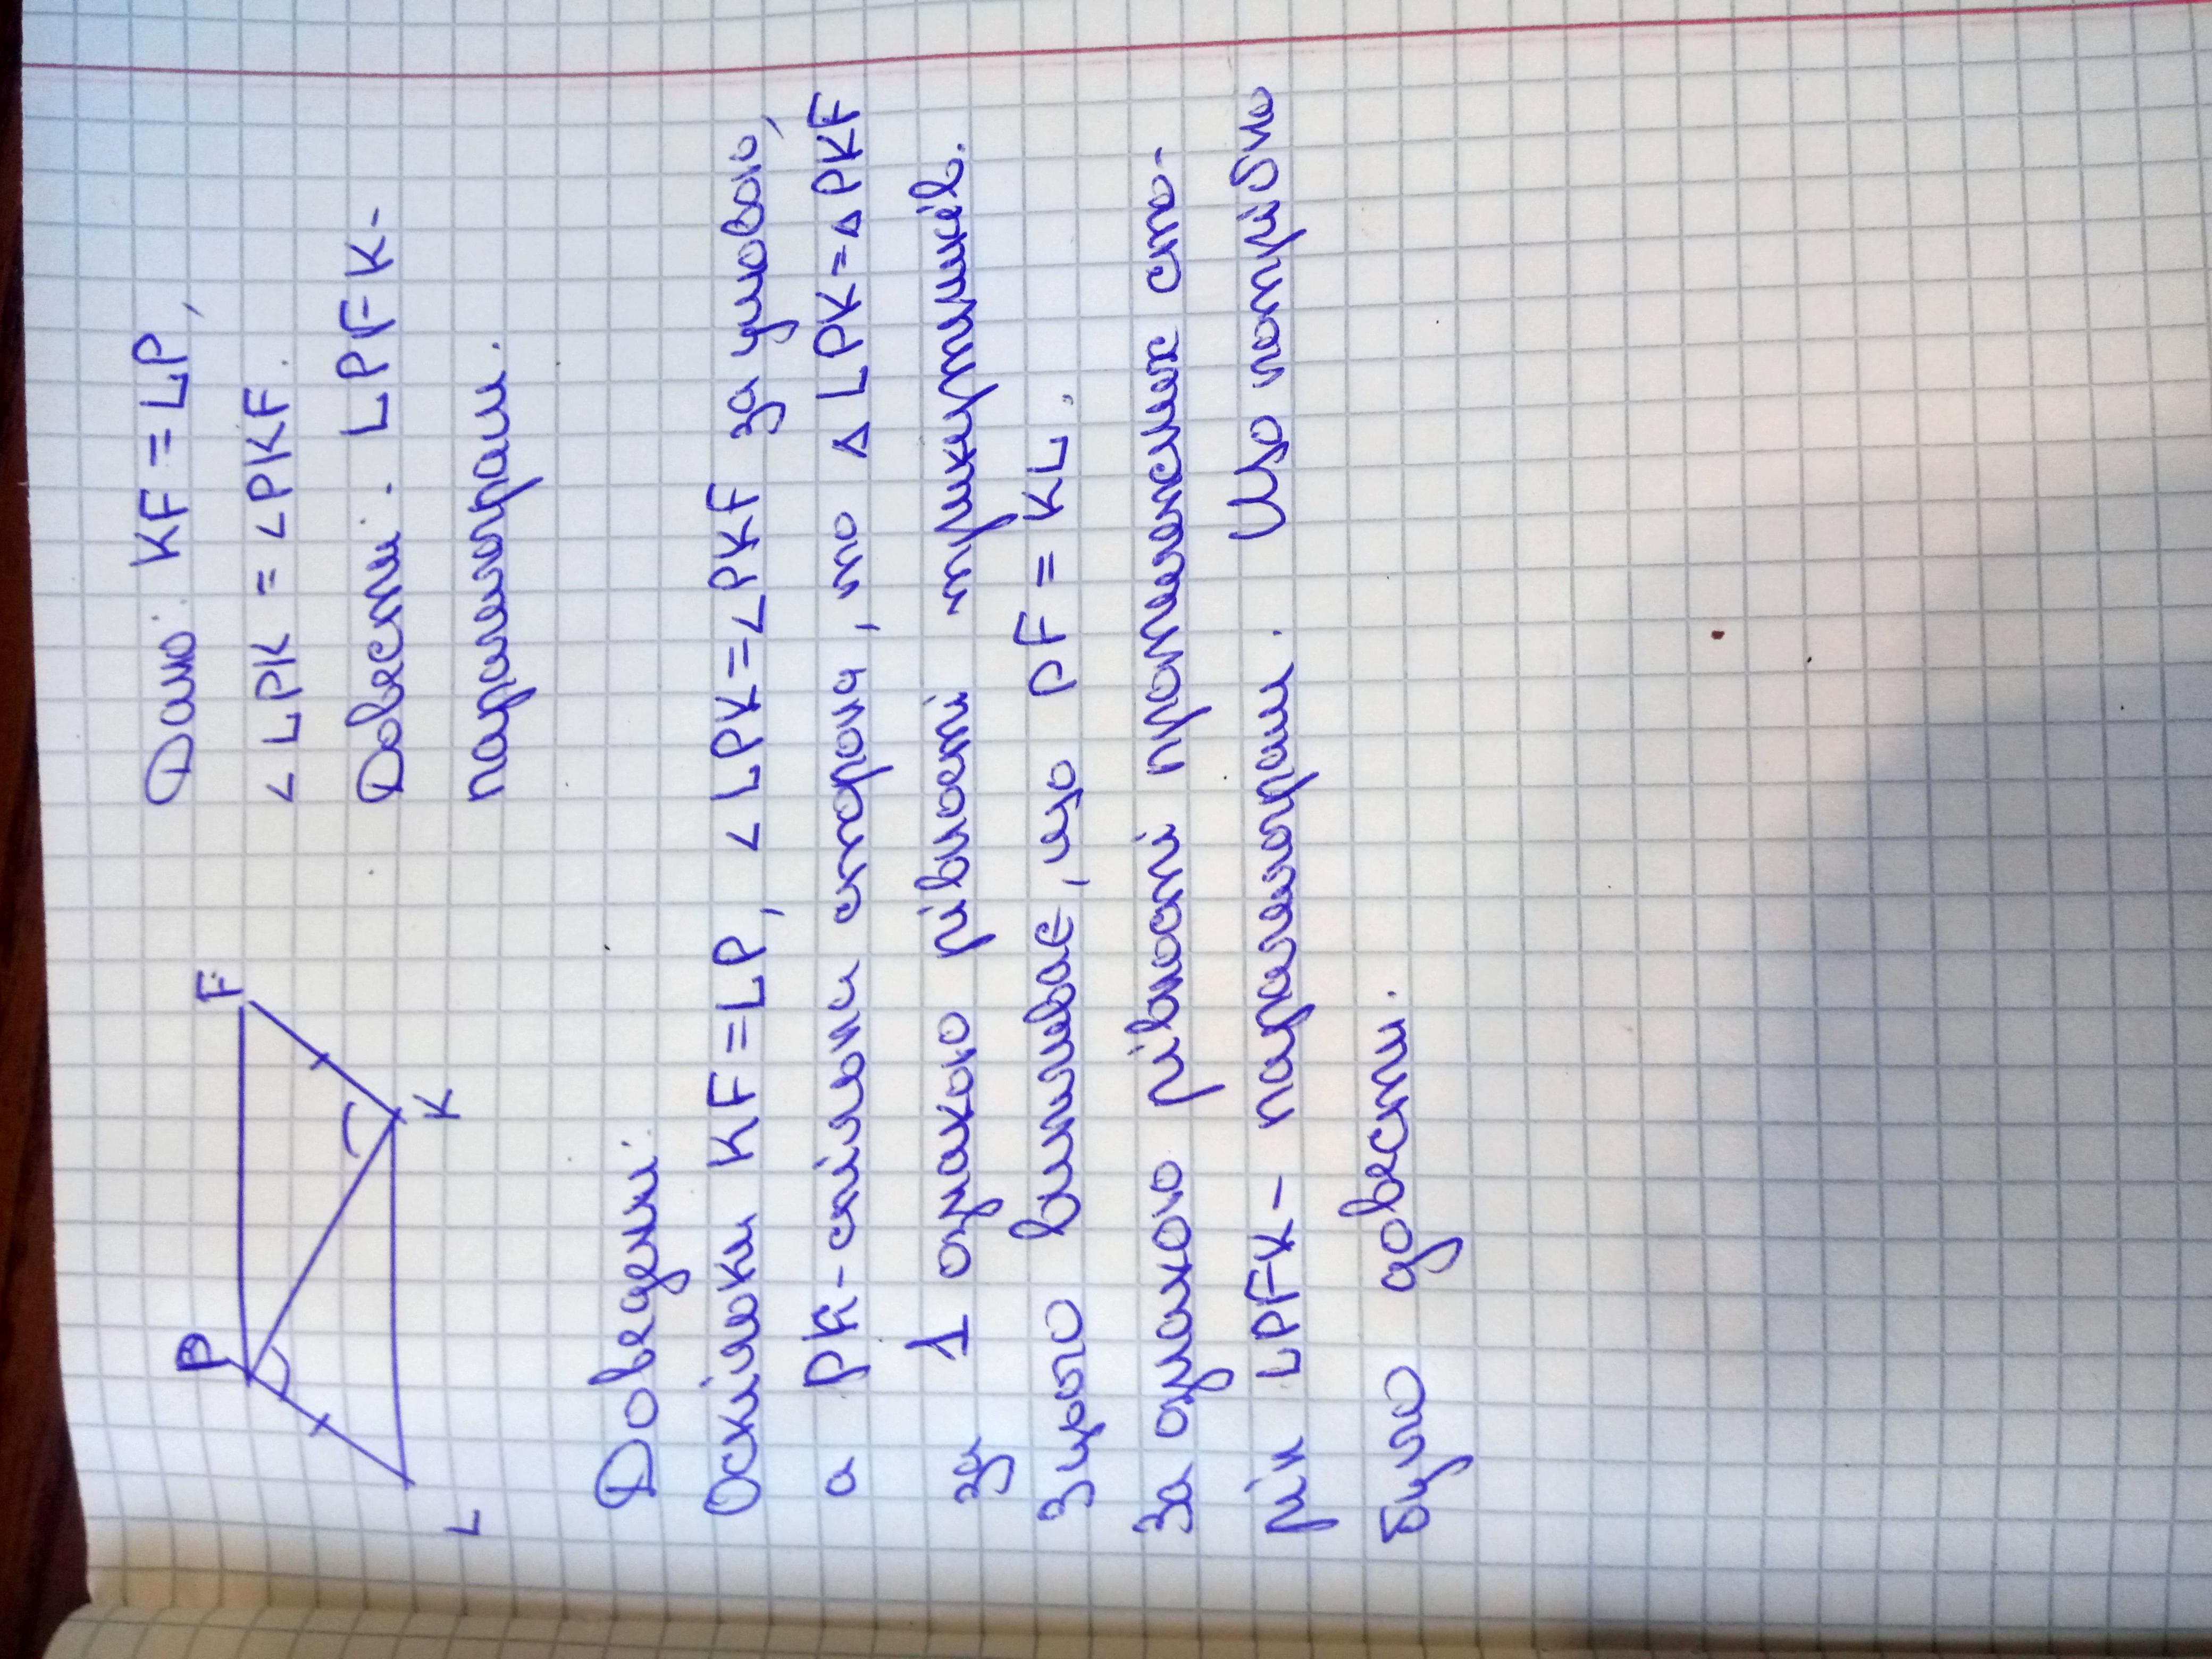 P F
L K
Дано: KF = LP,
∠LPK = ∠PKF.
Довести: LPFK-
паралелограм.
Доведемі:
Оскільки KF = LP, ∠LPK = ∠PKF за умовою,
а PK - спільна сторона, то △LPK = △PKF
за 1 ознакою рівності трикутників.
З цього випливає, що PF = KL.
За ознакою рівності протилежних сто-
рін LPFK - паралелограм. Що потрібно
було довести.